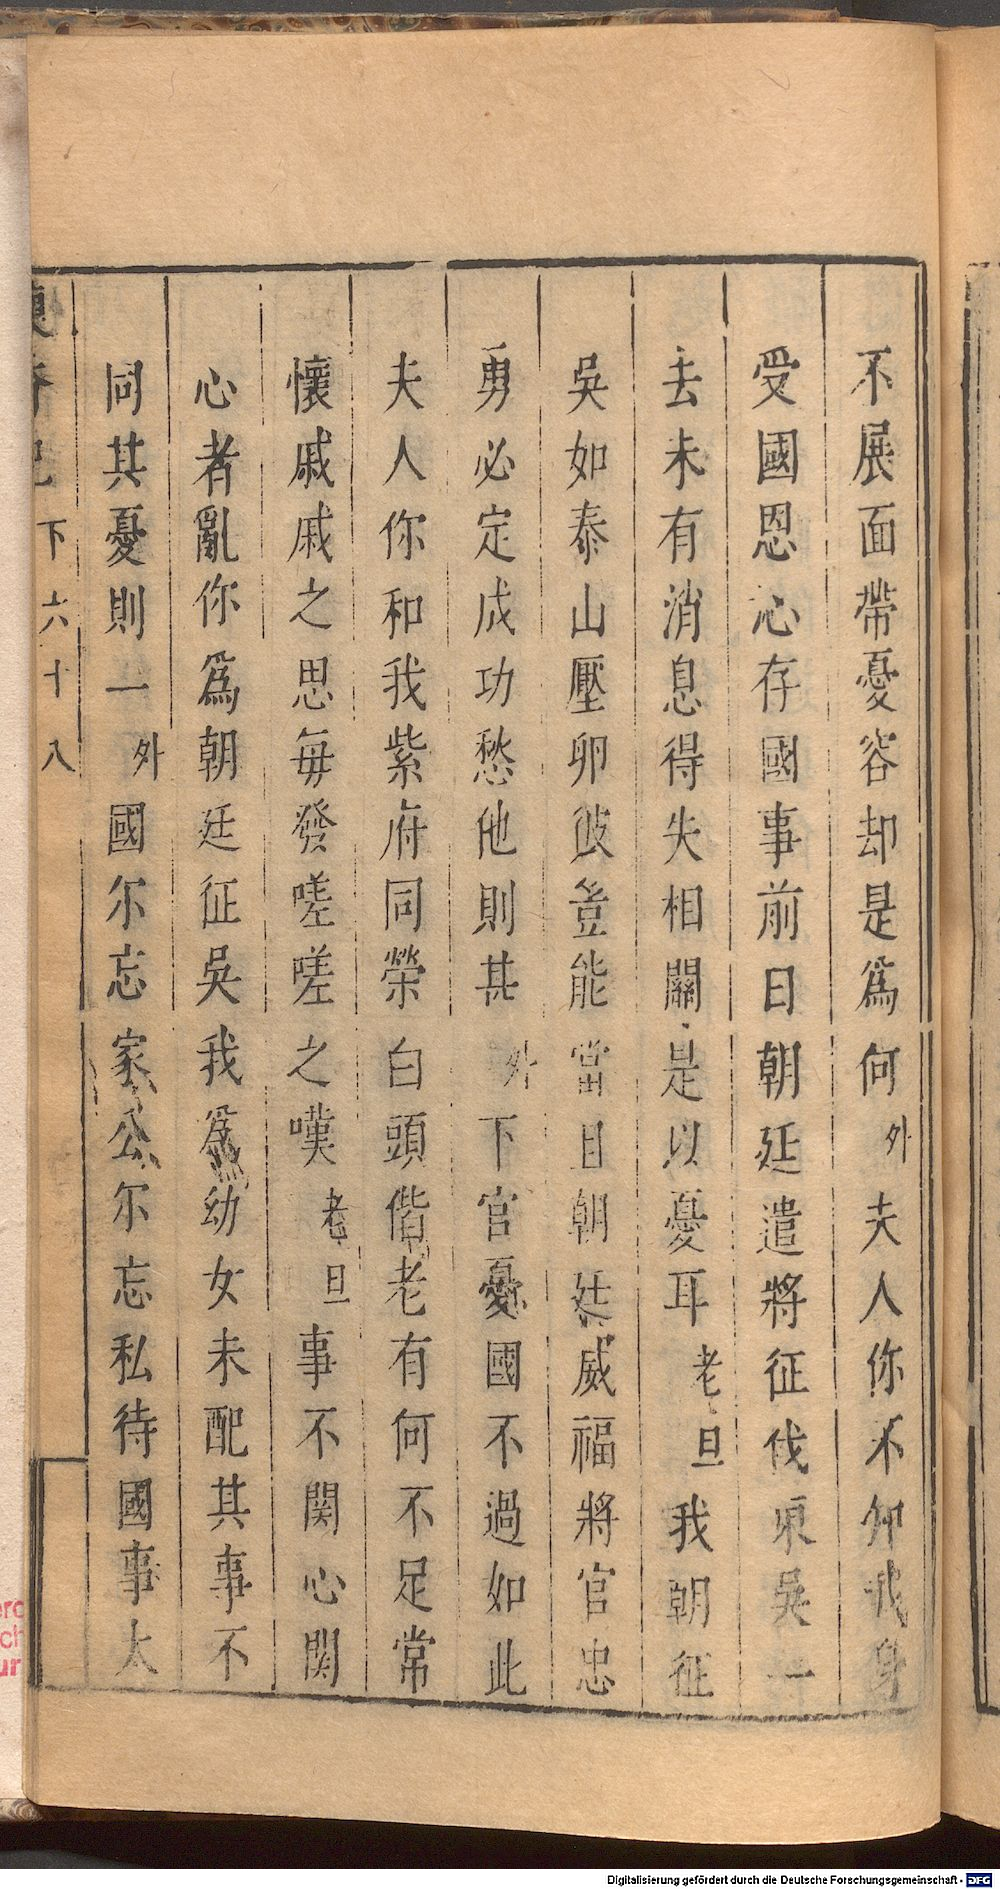 不展面帶憂容却是爲何外夫人你不知我身
受國恩心存國事前日朝廷遣將征伐東吳一
去未有消息得失相關是以憂耳老旦我朝征
吳如泰山壓卵彼豈能當且朝廷威福將官忠
勇必定成功愁他則甚外下官憂國不過如此
夫人你和我紫府同榮白頭偕老有何不足常
懷戚戚之思每發嗟嗟之嘆老旦事不関心関
心者亂你爲朝廷征吳我爲幼女未配其事不
同其憂則一外國尔忘家公尔忘私待國事太
香記 下六十八
Digitalisierung gefördert durch die Deutsche Forschungsgemeinschaft - DFG